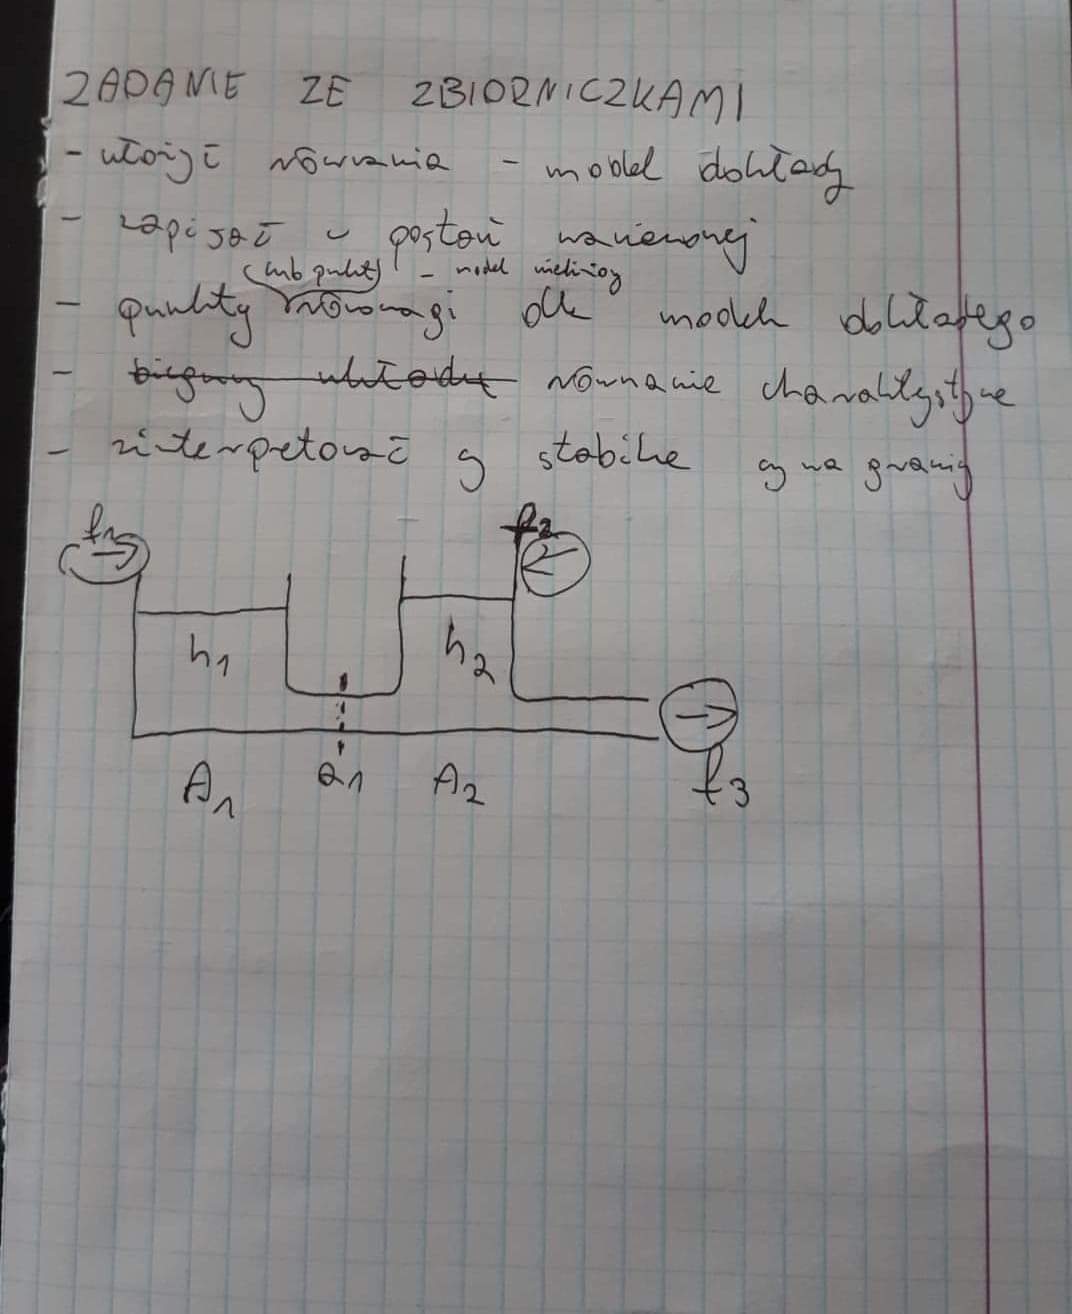 ZADANIE ZE ZBIORNICZKAMI
- ułożyć równania - model dokłady
- zapisać w postaci
(lub punkt) - model
- punkty równowagi dla modelu dokładego
- bieguny układu równanie charaktystyczne
- zinterpretować czy stabilne czy na granicy
f1 f2
h1 h2
A1 a1 A2 f3